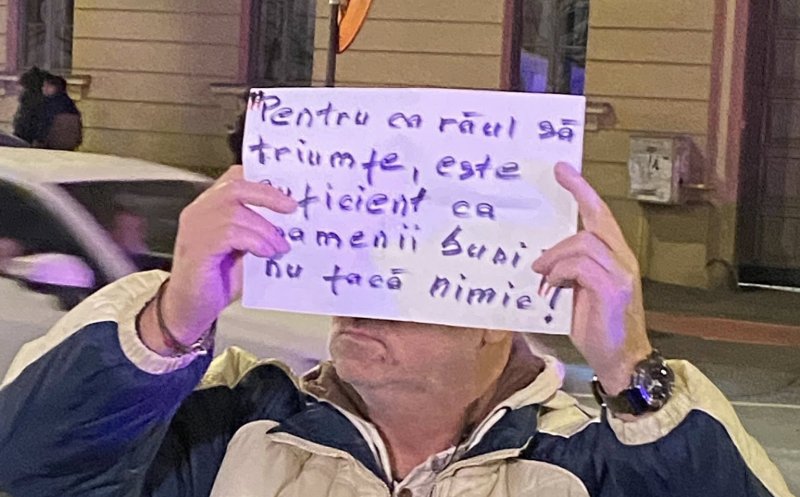 "Pentru ca răul să
triumfe, este
suficient ca
oamenii buni
nu facă nimic"!